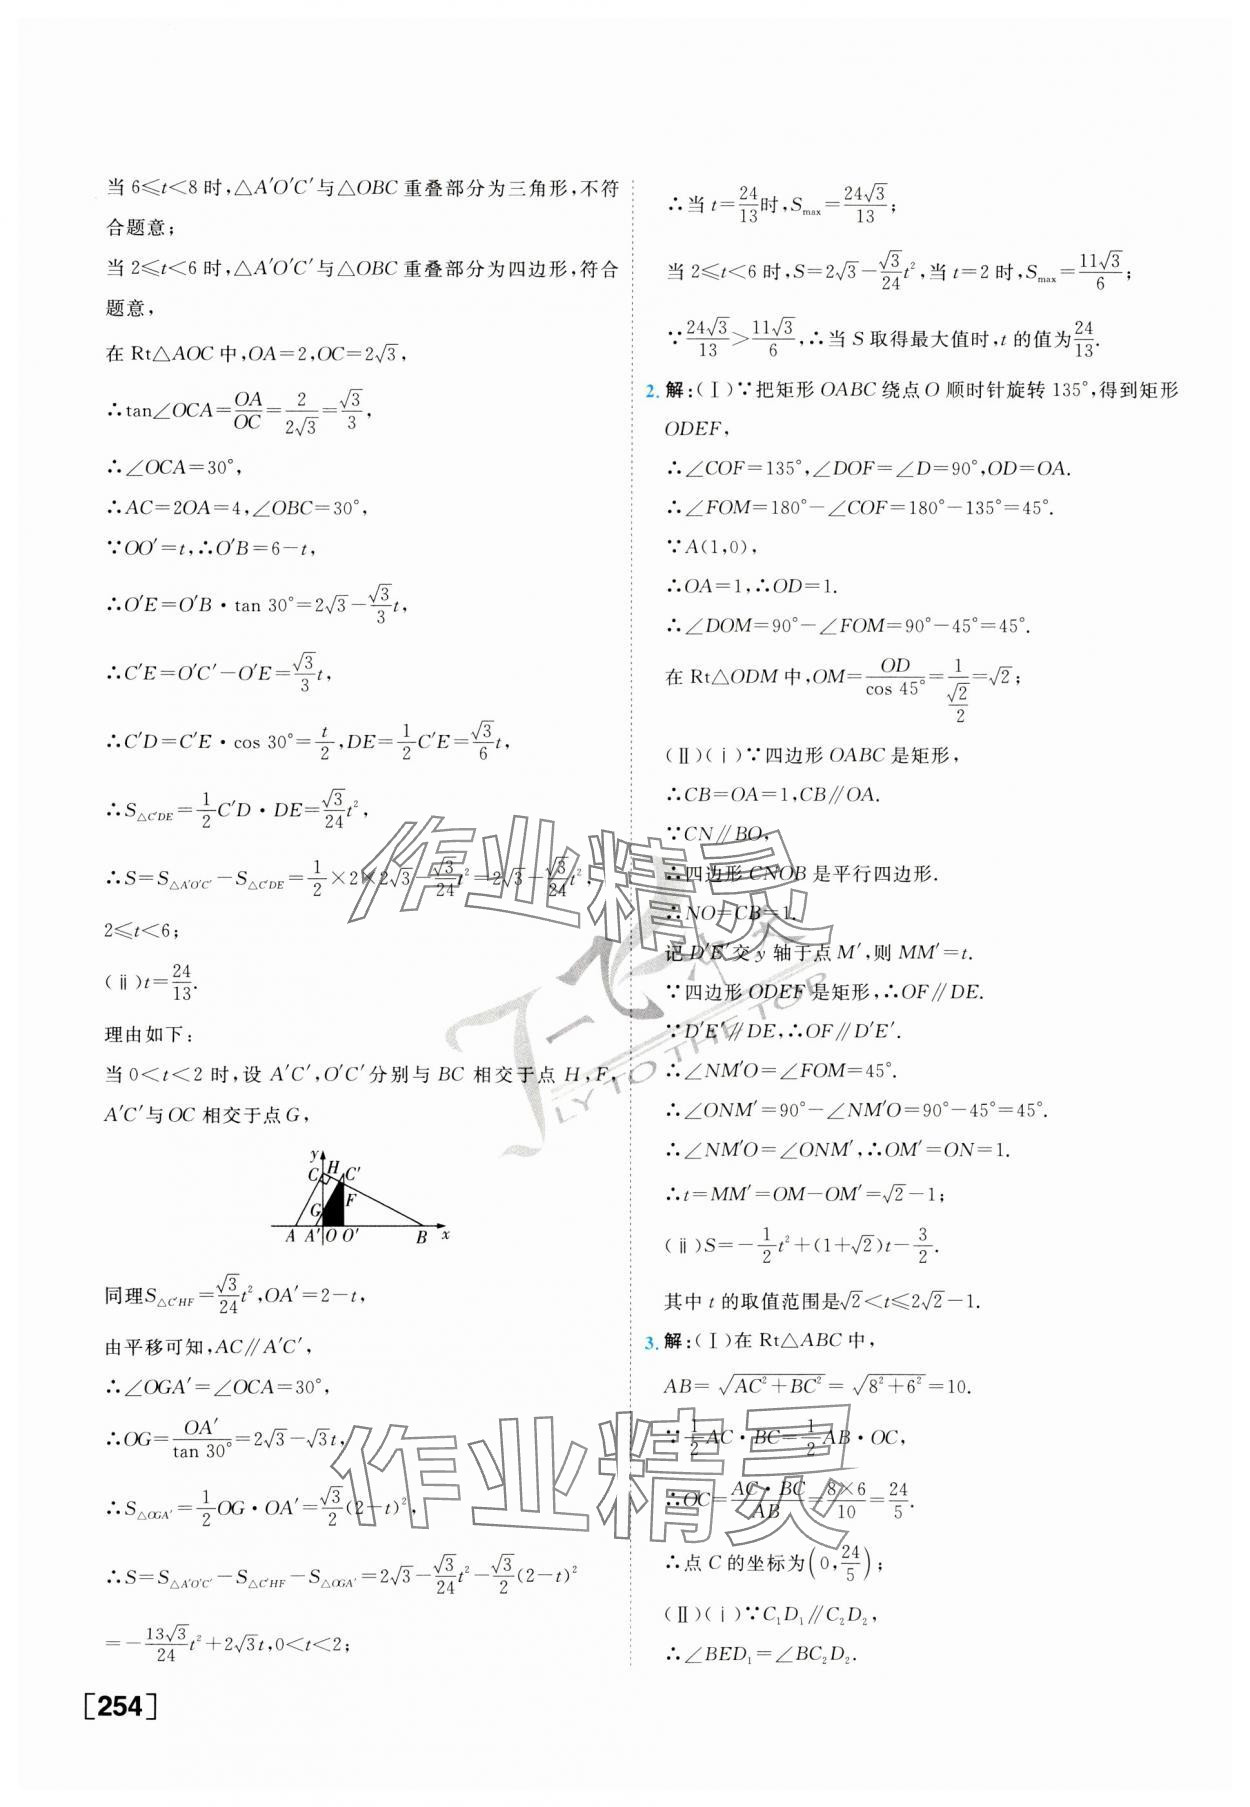 当 6≤t<8 时,△A′O′C′与△OBC 重叠部分为三角形,不符
合题意;
当 2≤t<6 时,△A′O′C′与△OBC 重叠部分为四边形,符合
题意,
在 Rt△AOC 中,OA=2,OC=2√3,
∴tan∠OCA=OA/OC=2/(2√3)=√3/3,
∴∠OCA=30°,
∴AC=2OA=4,∠OBC=30°,
∵OO′=t,∴O′B=6−t,
∴O′E=O′B·tan 30°=2√3−(√3/3)t,
∴C′E=O′C′−O′E=(√3/3)t,
∴C′D=C′E·cos 30°=t/2,DE=(1/2)C′E=(√3/6)t,
∴S△C′DE=(1/2)C′D·DE=(√3/24)t²,
∴S=S△A′O′C′−S△C′DE=(1/2)×2×2√3−(√3/24)t²=2√3−(√3/24)t²,
2≤t<6;
(ⅱ)t=24/13.
理由如下:
当 0<t<2 时,设 A′C′,O′C′分别与 BC 相交于点 H,F,
A′C′与 OC 相交于点 G,
y
C H C′
G F
A A′ O O′ B x
同理S△C′HF=(√3/24)t²,OA′=2−t,
由平移可知,AC∥A′C′,
∴∠OGA′=∠OCA=30°,
∴OG=OA′/tan 30°=2√3−√3t,
∴S△OGA′=(1/2)OG·OA′=(√3/2)(2−t)²,
∴S=S△A′O′C′−S△C′HF−S△OGA′=2√3−(√3/24)t²−(√3/2)(2−t)²
=−(13√3/24)t²+2√3t,0<t<2;
[254]
∴当 t=24/13时,Smax=24√3/13;
当 2≤t<6 时,S=2√3−(√3/24)t²,当 t=2 时,Smax=11√3/6;
∵24√3/13>11√3/6,∴当 S 取得最大值时,t 的值为24/13.
2. 解:(Ⅰ)∵把矩形 OABC 绕点 O 顺时针旋转 135°,得到矩形
ODEF,
∴∠COF=135°,∠DOF=∠D=90°,OD=OA.
∴∠FOM=180°−∠COF=180°−135°=45°.
∵A(1,0),
∴OA=1,∴OD=1.
∴∠DOM=90°−∠FOM=90°−45°=45°.
在 Rt△ODM 中,OM=OD/cos 45°=1/(√2/2)=√2;
(Ⅱ)(ⅰ)∵四边形 OABC 是矩形,
∴CB=OA=1,CB∥OA.
∵CN∥BO,
∴四边形 CNOB 是平行四边形.
∴NO=CB=1.
记 D′E′交 y 轴于点 M′,则 MM′=t.
∵四边形 ODEF 是矩形,∴OF∥DE.
∵D′E′∥DE,∴OF∥D′E′.
∴∠NM′O=∠FOM=45°.
∴∠ONM′=90°−∠NM′O=90°−45°=45°.
∴∠NM′O=∠ONM′,∴OM′=ON=1.
∴t=MM′=OM−OM′=√2−1;
(ⅱ)S=−(1/2)t²+(1+√2)t−3/2.
其中 t 的取值范围是√2<t≤2√2−1.
3. 解:(Ⅰ)在 Rt△ABC 中,
AB=√(AC²+BC²)=√(8²+6²)=10.
∵(1/2)AC·BC=(1/2)AB·OC,
∴OC=AC·BC/AB=8×6/10=24/5.
∴点 C 的坐标为(0,24/5);
(Ⅱ)(ⅰ)∵C₁D₁∥C₂D₂,
∴∠BED₁=∠BC₂D₂.
作业精灵
作业精灵